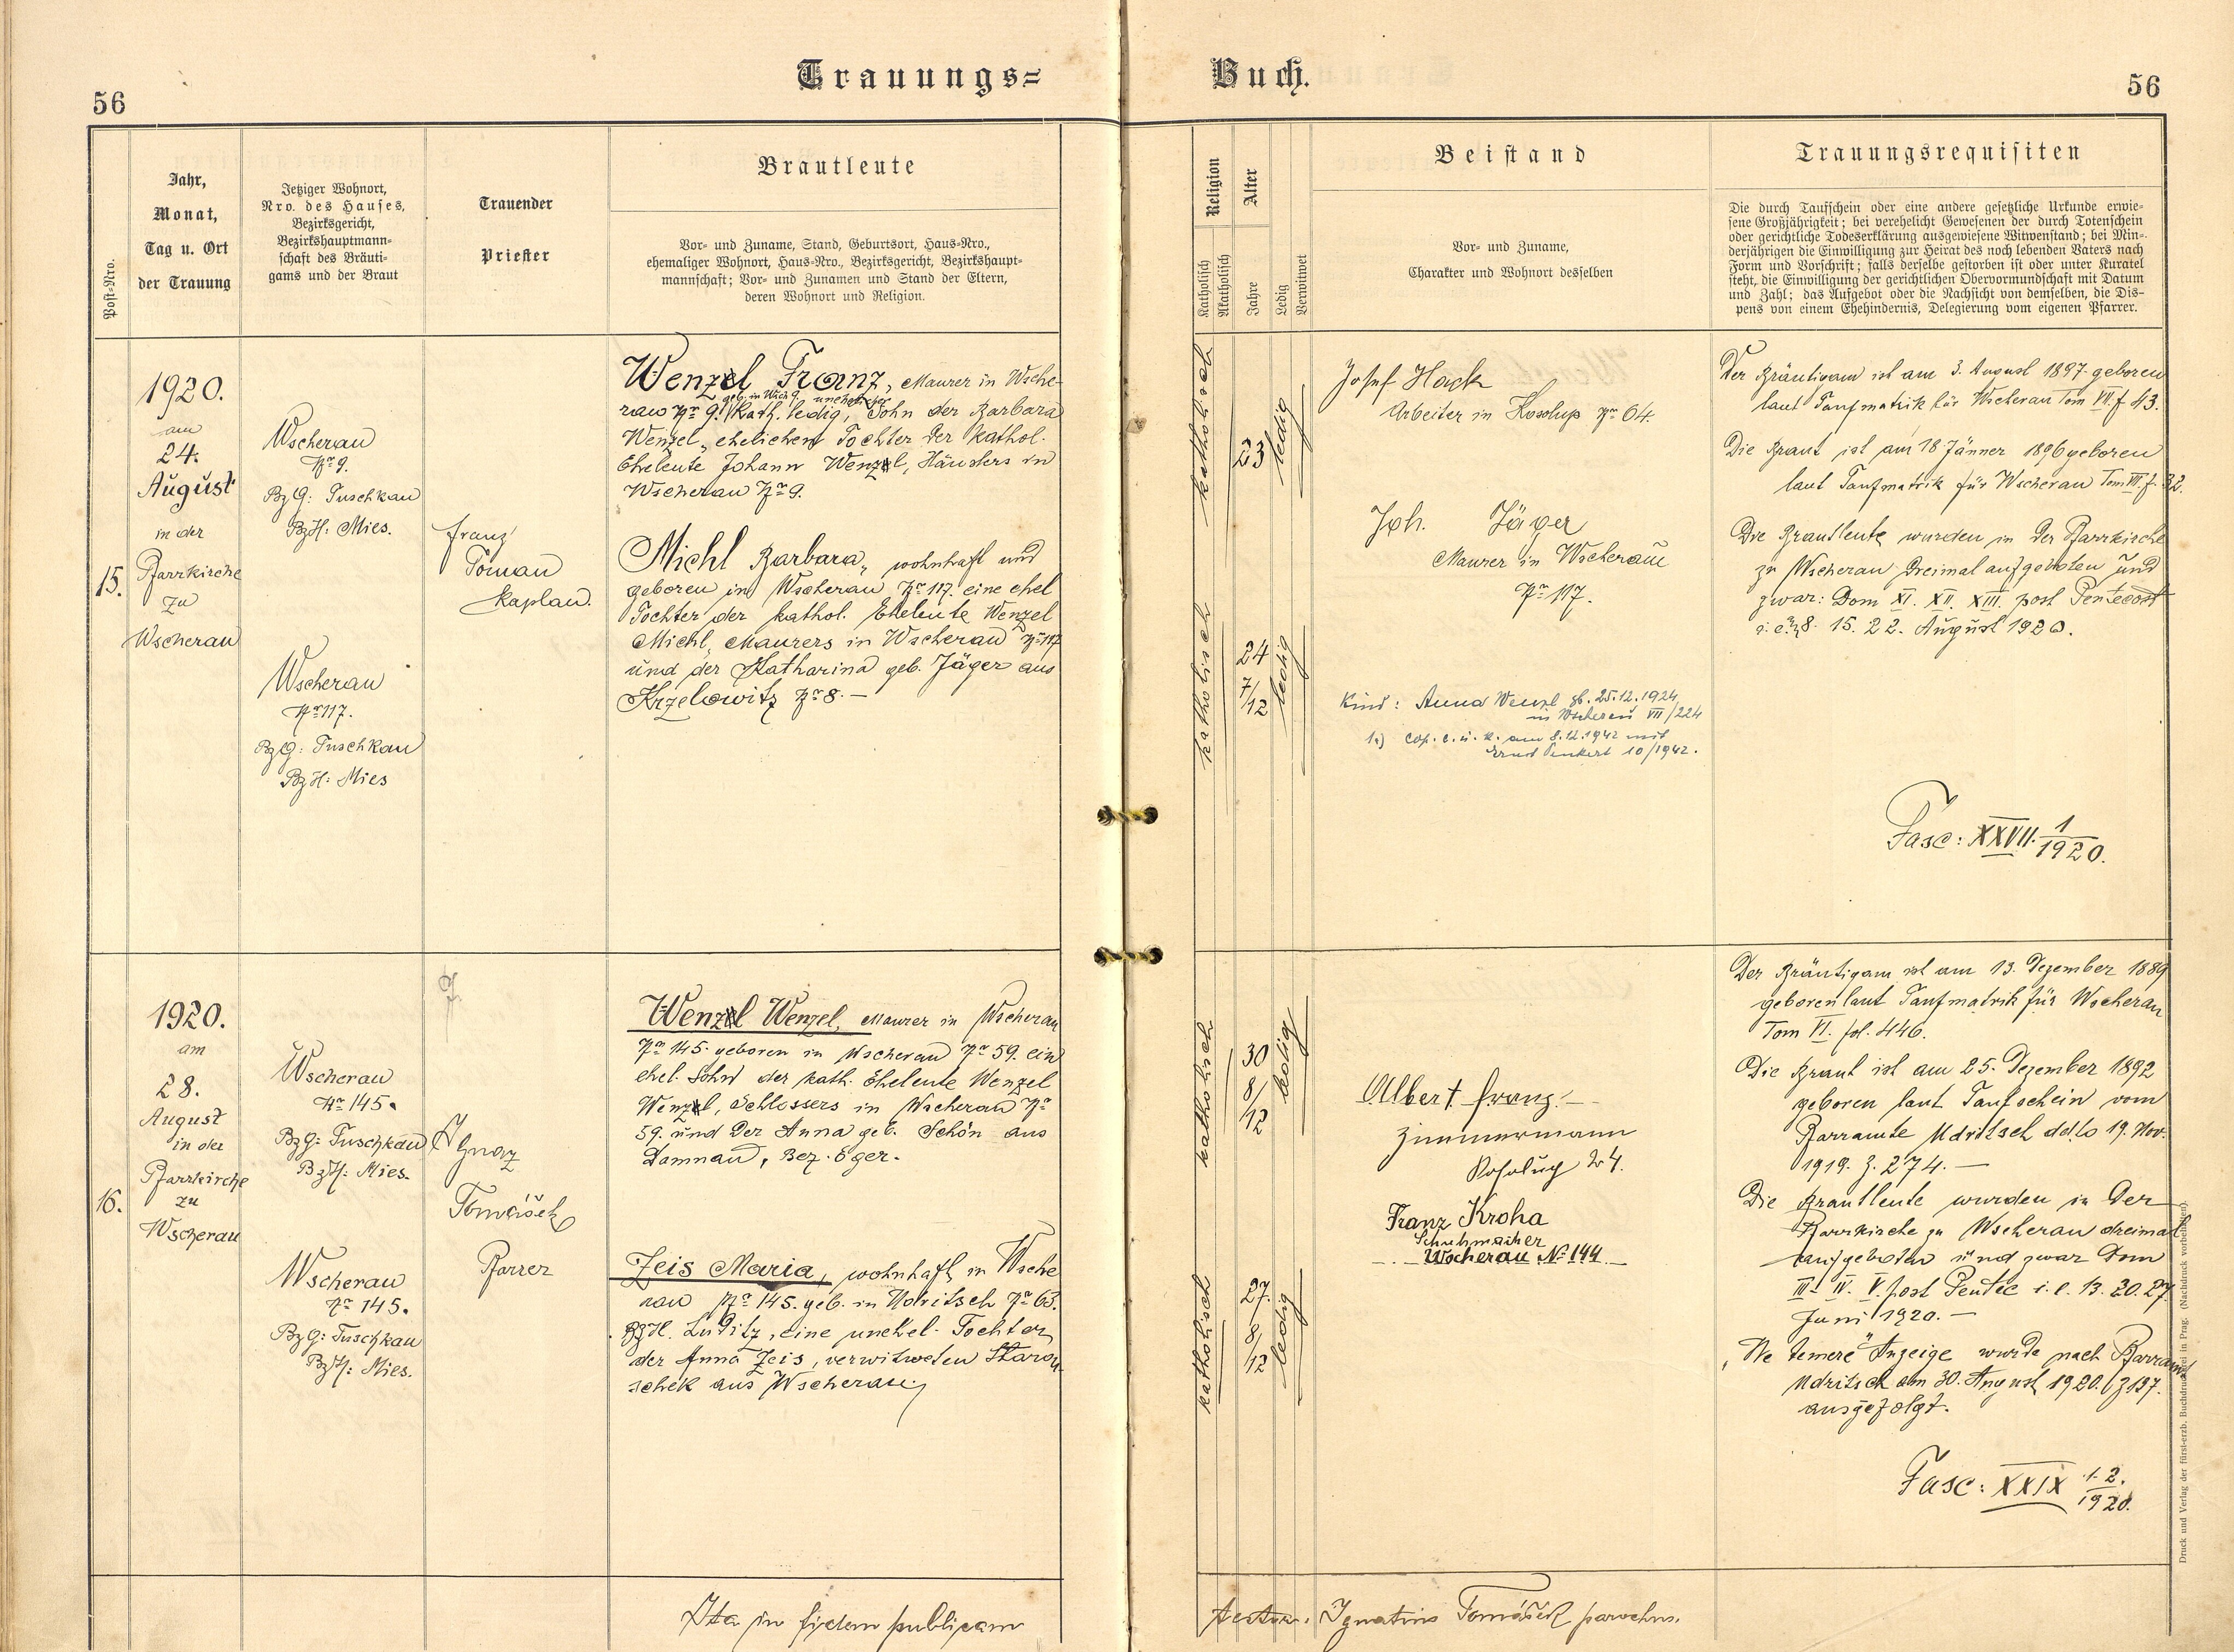 56
Trauungs=
Buch.
56
Post-Nro.
Jahr,
Monat,
Tag u. Ort
der Trauung
Jetziger Wohnort,
Nro. des Hauses,
Bezirksgericht,
Bezirkshauptmann-
schaft des Bräuti-
gams und der Braut
Trauender
Priester
Brautleute
Vor- und Zuname, Stand, Geburtsort, Haus-Nro.,
ehemaliger Wohnort, Haus-Nro., Bezirksgericht, Bezirkshaupt-
mannschaft; Vor- und Zunamen und Stand der Eltern,
deren Wohnort und Religion.
Religion
Katholisch
Akatholisch
Alter
Jahre
Ledig
Verwitwet
Beistand
Vor- und Zuname,
Charakter und Wohnort desselben
Trauungsrequisiten
Die durch Taufschein oder eine andere gesetzliche Urkunde erwie-
sene Großjährigkeit; bei verehelicht Gewesenen der durch Totenschein
oder gerichtliche Todeserklärung ausgewiesene Witwenstand; bei Min-
derjährigen die Einwilligung zur Heirat des noch lebenden Vaters nach
Form und Vorschrift; falls derselbe gestorben ist oder unter Kuratel
steht, die Einwilligung der gerichtlichen Obervormundschaft mit Datum
und Zahl; das Aufgebot oder die Nachsicht von demselben, die Dis-
pens von einem Ehehindernis, Delegierung vom eigenen Pfarrer.
15.
1920.
am
24.
August
in der
Pfarrkirche
zu
Wscherau
Wscherau
Nr 9.
BzG: Tuschkau
BzH: Mies.
Wscherau
Nr 117.
BzG: Tuschkau
BzH: Mies
Franz
Toman
Kaplan.
Wenzl Franz, Maurer in Wsche-
geb. in Wsch 9. unehelicher
rau Nr 9. kath. ledig, Sohn der Barbara
Wenzel, ehelichen Tochter der kathol.
Eheleute Johann Wenzl, Häuslers in
Wscherau Nr 9.
Michl Barbara, wohnhaft und
geboren in Wscherau Nr 117. eine ehel
Tochter der kathol. Eheleute Wenzel
Michl, Maurers in Wscherau Nr 117
und der Katharina geb. Jäger aus
Krzelowitz Nr 8. —
katholisch
23
ledig
katholisch
24
7/12
ledig
Josef Hack
Arbeiter in Kosolup Nr 64.
Joh. Jäger
Maurer in Wscherau
Nr 117.
Kind: Anna Wenzl gb. 25.12.1924
in Wscherau VII/224
1.) cop. c. u. k. am 8.12.1942 mit
Ernst Penkert 10/1942.
Der Bräutigam ist am 3. August 1897 geboren
laut Taufmatrik für Wscherau Tom VII. f. 43.
Die Braut ist am 18 Jänner 1896 geboren
laut Taufmatrik für Wscherau Tom VII. f. 32.
Die Brautleute wurden in der Pfarrkirche
zu Wscherau Dreimal aufgeboten und
zwar: Dom XI. XII. XIII. post Pentecost
i. e. 8. 15. 22. August 1920.
Fasc: XXVII. 1/1920.
16.
1920.
am
28.
August
in der
Pfarrkirche
zu
Wscherau
Wscherau
Nr 145.
BzG: Tuschkau
BzH: Mies.
Wscherau
Nr 145.
BzG: Tuschkau
BzH: Mies.
Ignaz
Tomášek
Pfarrer
Wenzl Wenzel, Maurer in Wscherau
Nr 145. geboren in Wscherau Nr 59. ein
ehel. Sohn der kath. Eheleute Wenzel
Wenzl, Schlossers in Wscherau Nr
59. und Der Anna geb. Schön aus
Damnau, Bez. Eger.
Zeis Maria, wohnhaft in Wsche
rau Nr 145. geb. in Udritsch Nr 63.
BzH. Luditz, eine unehel. Tochter
der Anna Zeis, verwitweten Staron
schek aus Wscherau.
katholisch
30
8/12
ledig
katholisch
27.
8/12
ledig
Albert Franz
Zimmermann
Kosolup 24.
Franz Kroha
Schuhmacher
Wscherau No 144.
Der Bräutigam ist am 13. Dezember 1889
geboren laut Taufmatrik für Wscherau
Tom VI. fol. 446.
Die Braut ist am 25. Dezember 1892
geboren laut Taufschein vom
Pfarramte Udritsch ddto 19. Nov.
1919. Z. 274. —
Die Brautleute wurden in Der
Pfarrkirche zu Wscherau dreimal
aufgeboten und zwar Dom
III. IV. V. post Pentec i. e. 13. 20. 27
Juni 1920. —
„Ne temere" Anzeige wurde nach Pfarramt
Udritsch am 30. August 1920. Z 137.
ausgefolgt.
Fasc: XXIX 1. 2./1920.
Druck und Verlag der fürst-erzb. Buchdruckerei in Prag. (Nachdruck vorbehalten)
Ita in fidem publicam
testor. Ignatius Tomášek parochus.